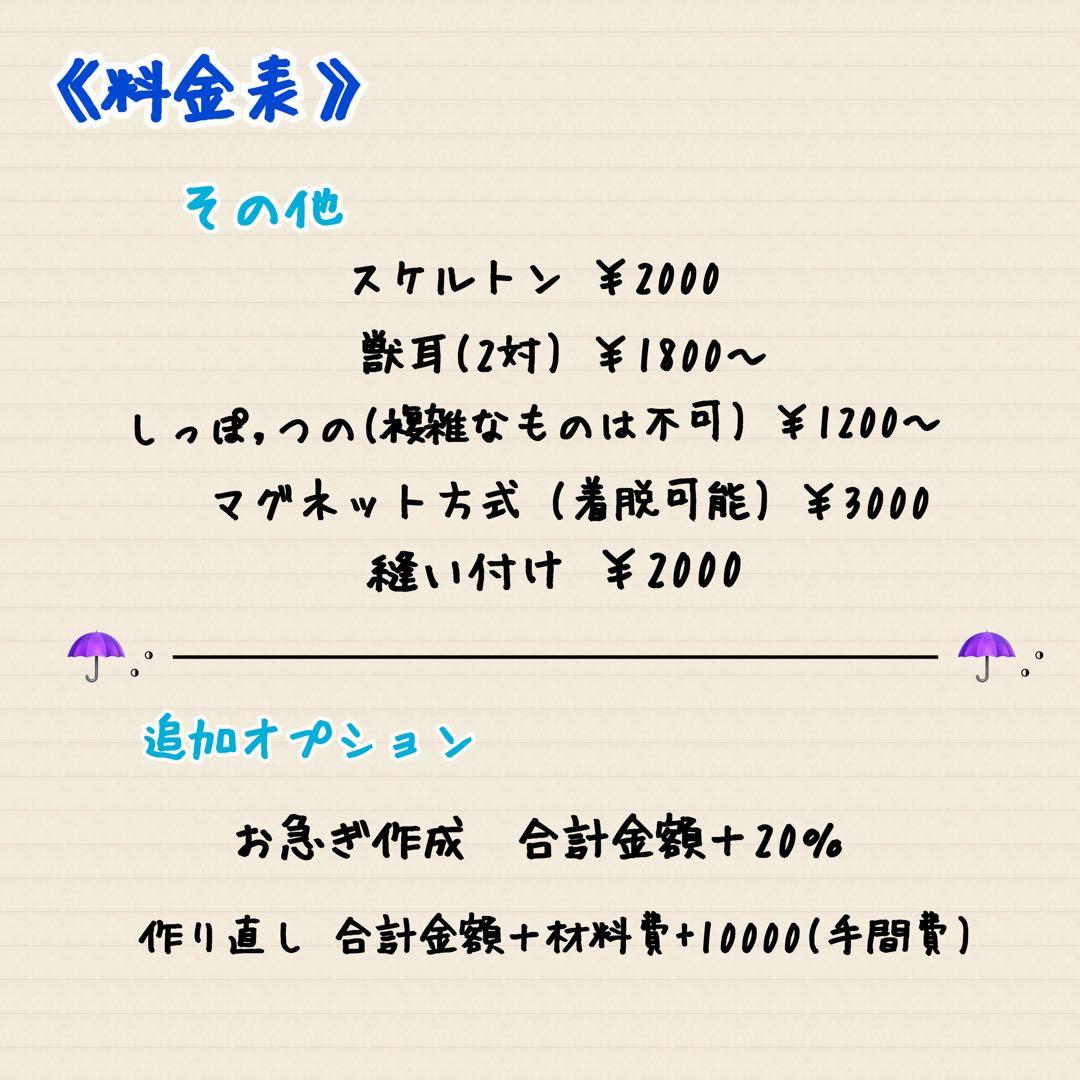 《料金表》
その他
スケルトン ¥2000
獣耳(2対) ¥1800〜
しっぽ,つの(複雑なものは不可) ¥1200〜
マグネット方式 (着脱可能) ¥3000
縫い付け ¥2000
追加オプション
お急ぎ作成　合計金額+20%
作り直し 合計金額+材料費+10000(手間費)